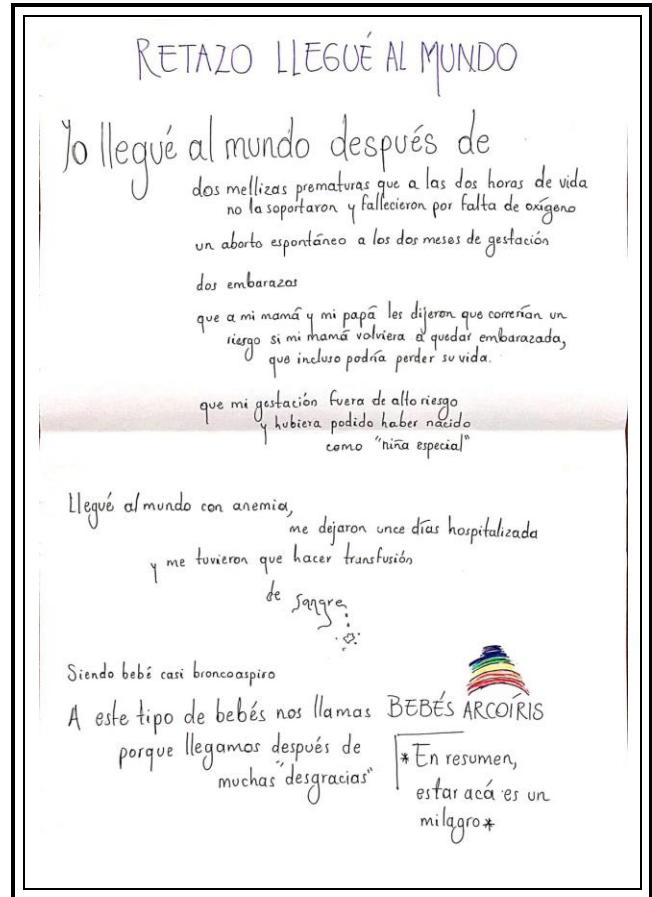 RETAZO LLEGUÉ AL MUNDO
Yo llegué al mundo después de
dos mellizas prematuras que a las dos horas de vida
no la soportaron y fallecieron por falta de oxígeno
un aborto espontáneo a los dos meses de gestación
dos embarazos
que a mi mamá y mi papá les dijeron que correrían un
riesgo si mi mamá volviera a quedar embarazada,
que incluso podría perder su vida.
que mi gestación fuera de alto riesgo
y hubiera podido haber nacido
como "niña especial"
Llegué al mundo con anemia,
me dejaron once días hospitalizada
y me tuvieron que hacer transfusión
de sangre
Siendo bebé casi broncoaspiro
A este tipo de bebés nos llamas BEBÉS ARCOÍRIS
porque llegamos después de
muchas "desgracias"
*En resumen,
estar acá es un
milagro*